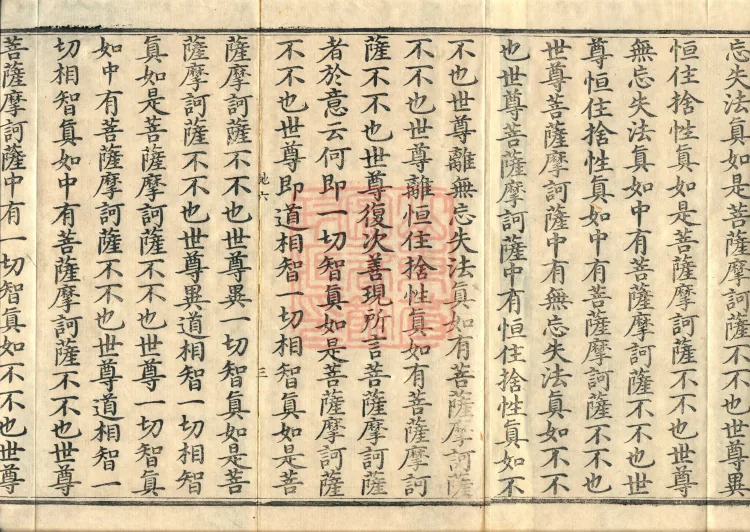 忘失法眞如是菩薩摩訶薩不不也世尊異
恒住捨性眞如是菩薩摩訶薩不不也世尊
無忘失法眞如中有菩薩摩訶薩不不也世
尊恒住捨性眞如中有菩薩摩訶薩不不也
世尊菩薩摩訶薩中有無忘失法眞如不不
也世尊菩薩摩訶薩中有恒住捨性眞如不
不也世尊離無忘失法眞如有菩薩摩訶薩
不不也世尊離恒住捨性眞如有菩薩摩訶
薩不不也世尊復次善現所言菩薩摩訶薩
者於意云何即一切智眞如是菩薩摩訶薩
不不也世尊即道相智一切相智眞如是菩
地六
三
薩摩訶薩不不也世尊異一切智眞如是菩
薩摩訶薩不不也世尊異道相智一切相智
眞如是菩薩摩訶薩不不也世尊一切智眞
如中有菩薩摩訶薩不不也世尊道相智一
切相智眞如中有菩薩摩訶薩不不也世尊
菩薩摩訶薩中有一切智眞如不不也世尊